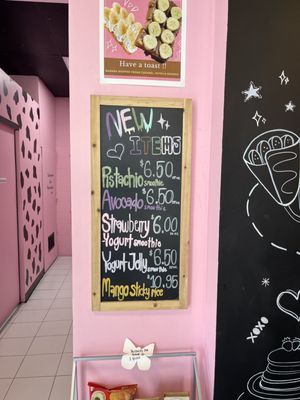 Have a toast !!
NEW
ITEMS
Pistachio smoothie $6.50
Avocado smoothie $6.50
Strawberry $6.00
Yogurt smoothie
Yogurt Jelly smoothie $6.50
Mango sticky rice $10.95
XOXO